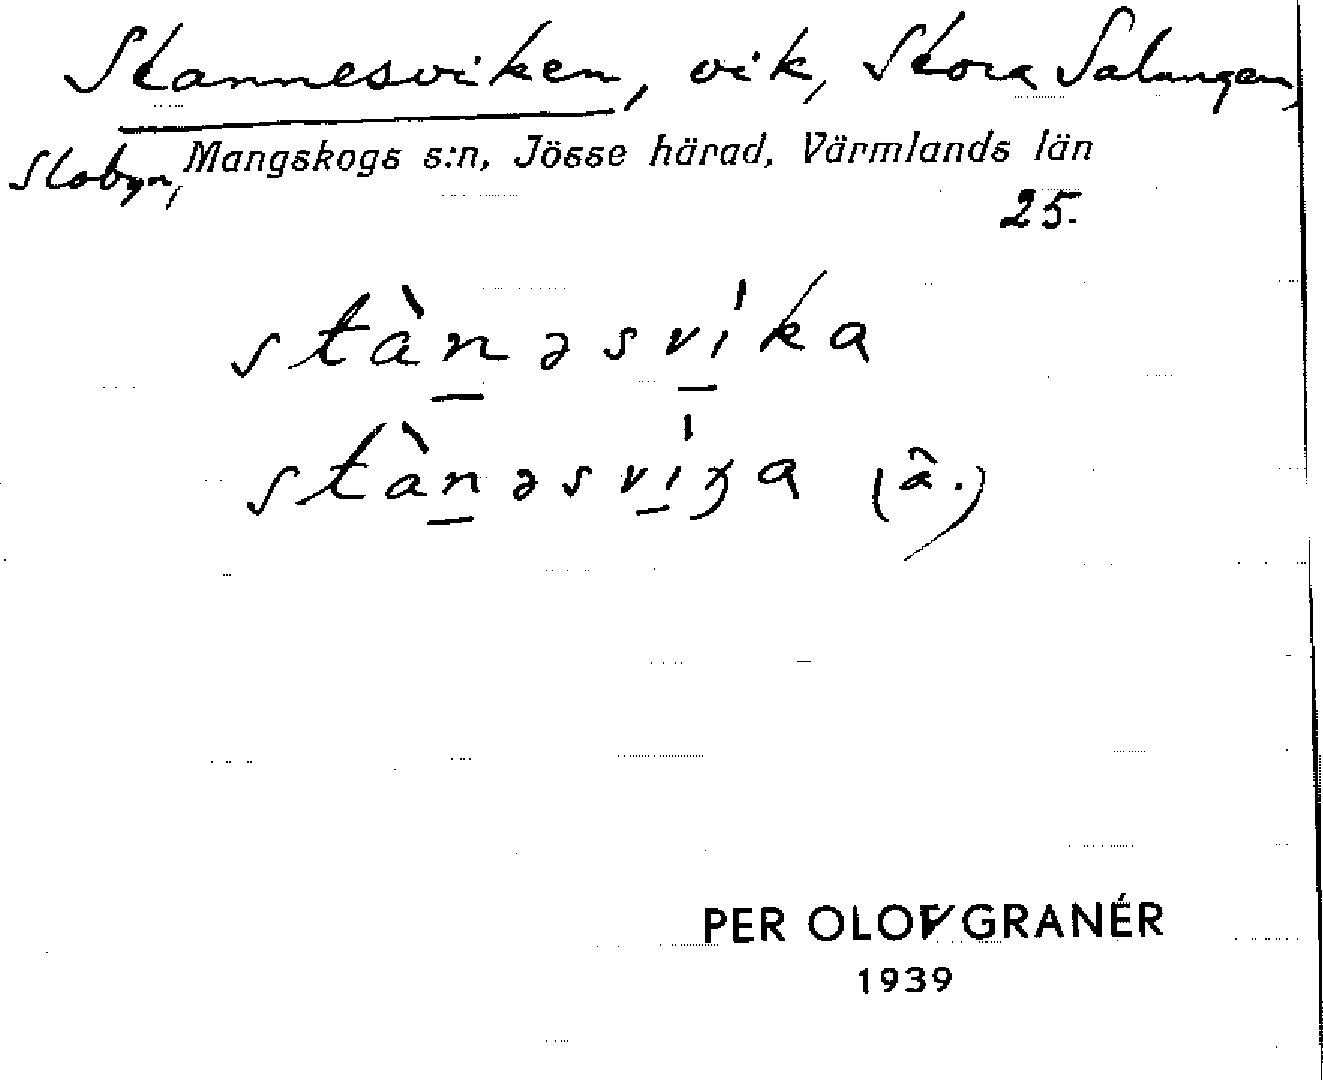 Stannesviken, vik, Stora Salungen,
Slobyn, Mangskogs s:n, Jösse härad, Värmlands län
25.
stàn̲əsv̲íka
stàn̲əsví̲ʒa (â.)
PER OLOV GRANÉR
1939